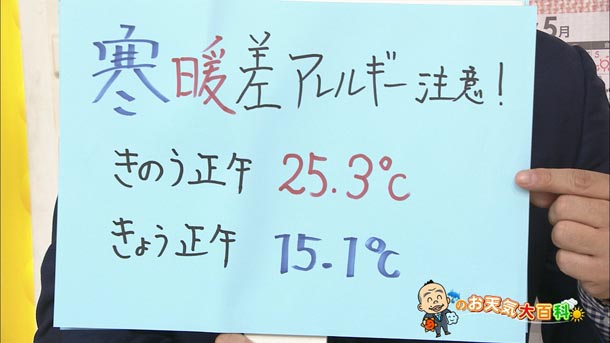 5月
寒暖差アレルギー注意！
きのう正午 25.3℃
きょう正午 15.1℃
のお天気大百科